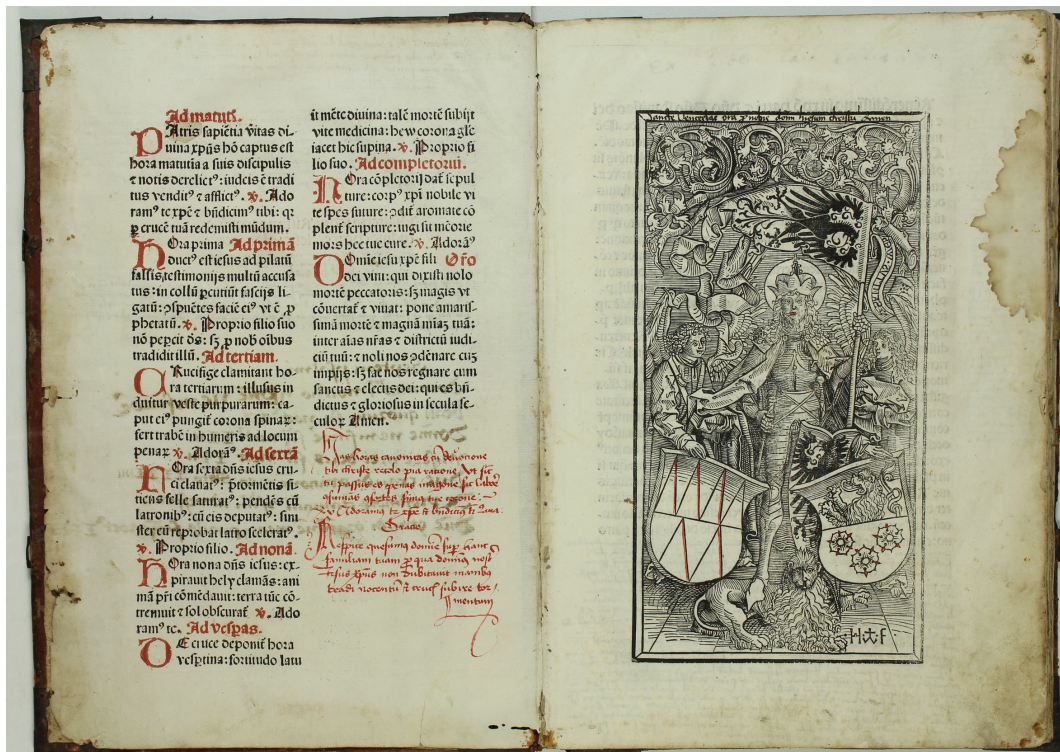 Ad matutꝭ.
PAtris sapiẽtia vitas di-
uina xpũs hõ captus est
hora matutia a suis discipulis
⁊ notis derelictꝰ: iudeis ẽ tradi
tus venditꝰ ⁊ afflictꝰ. ℣. Ado
ramꝰ te xpẽ ⁊ bñdicimꝰ tibi: qꝛ
ꝑ crucẽ tuã redemisti mũdum.
HOra prima Ad primã
ductꝰ est iesus ad pilatũ
falsis testimonijs multũ accusa
tus: in collũ ꝑcutiũt fascijs li-
gatũ: ꝯspuẽtes faciẽ eiꝰ vt ẽ ꝓ
phetatũ. ℣. Proprio filio suo
nõ peꝑcit ds̃: sꝫ ꝓ nob̃ oĩbus
tradidit illũ. Ad tertiam.
CRucifige clamitant ho-
ra tertiarum: illusus in
duitur veste purpurarum: ca-
put eiꝰ pungit̃ corona spinaꝝ:
fert trabẽ in humeris ad locum
penaꝝ ℣. Adorãꝰ. Ad sextã
HOra sexta dñs iesus cru
ci clauatꝰ: ꝑ tormẽtis si-
tiens felle saturatꝰ: pendẽs cũ
latronibꝰ: cũ eis deputatꝰ: sini
ster eũ reprobat latro sceleratꝰ.
℣. Proprio filio. Ad nonã.
HOra nona dñs iesus: ex-
pirauit hely clamãs: ani
mã pr̃i cõmẽdauit: terra tũc cõ-
tremuit ⁊ sol obscurat̃ ℣. Ado
ramꝰ tc. Ad vesꝑas.
DE cruce deponit̃ hora
vesꝑtina: fortitudo latu
it in mẽte diuina: talẽ mortẽ subijt
vite medicina: hew corona gl'e
iacet hic supina. ℣. Proprio fi
lio suo. Ad completoriũ.
HOra cõpletorij dat̃ sepul
ture: corpꝰ xp̃i nobile vi
te spes future: ꝯdit̃ aromate cõ
plent̃ scripture: iugi sit mẽorie
mors hec tue cure. ℣. Adorãꝰ
DOmie iesu xp̃e fili Or̃o
dei viui: qui dixisti nolo
mortẽ peccatoris: sꝫ magis vt
cõuertat̃ ⁊ viuat: pone amaris-
simã mortẽ ⁊ magnã miãꝫ tuã:
inter aĩas nr̃as ⁊ districtũ iudi-
ciũ tuũ: ⁊ noli nos ꝯdẽnare cuꝫ
impijs: sꝫ fac nos regnare cum
sanctis ⁊ electis dei: qui es bñ-
dictus ⁊ gloriosus in secula se-
culoꝝ Amen.
Has horas canonicas cũ deuotione
tibi christe recolo pia ratione Vt sic
tu passus es penas in agone sic labore
ꝯsimus ꝯsortes simus tue corone:
℣ Adoramus te xp̃e et bñdicimꝰ ti
Oracio
Respice quesumus domine super hanc
familiam tuam ꝓ qua dominꝰ nost
iesus xp̃us non dubitauit manibꝰ
tradi nocentiũ et crucis subire tor
mentum
Sancte Venceslae ora ꝓ nobis dom ihesum christũ Amen